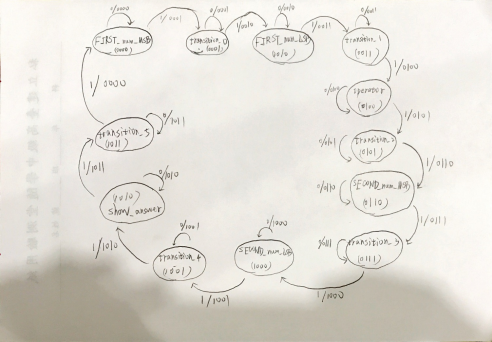 0/0000
1/0001
0/0001
1/0010
0/0010
1/0011
0/0011
FIRST_num_MSB
(0000)
transition_0
(0001)
FIRST_num_LSB
(0010)
transition_1
(0011)
1/0100
operator
(0100)
0/0100
1/0101
transition_2
(0101)
0/0101
1/0110
SECOND_num_MSB
(0110)
0/0110
1/0111
transition_3
(0111)
0/0111
1/1000
0/1000
SECOND_num_LSB
(1000)
1/1001
0/1001
transition_4
(1001)
1/1010
0/1010
(1010)
show_answer
1/1011
0/1011
transition_5
(1011)
1/0000